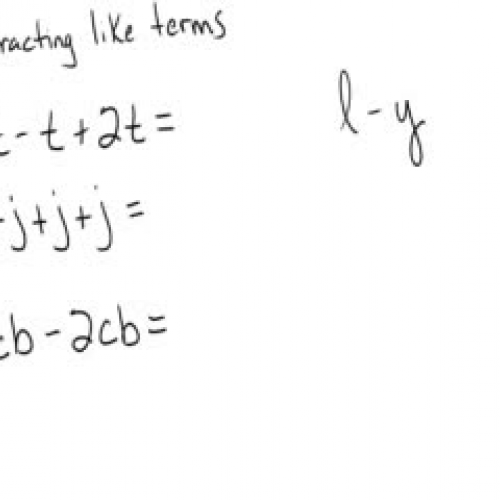 racting like terms
- t + 2t =
l - y
j + j + j =
b - 2cb =